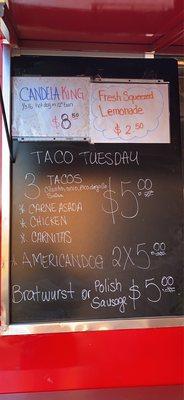 CANDELA KING
hot dog in 12" bun
$ 8.50
Fresh Squeezed
Lemonade
$ 2.50
TACO TUESDAY
3 TACOS
$5.00
* CARNE ASADA
* CHICKEN
* CARNITAS
* AMERICANDOG 2X5.00
Bratwurst or Polish
Sausage $5.00